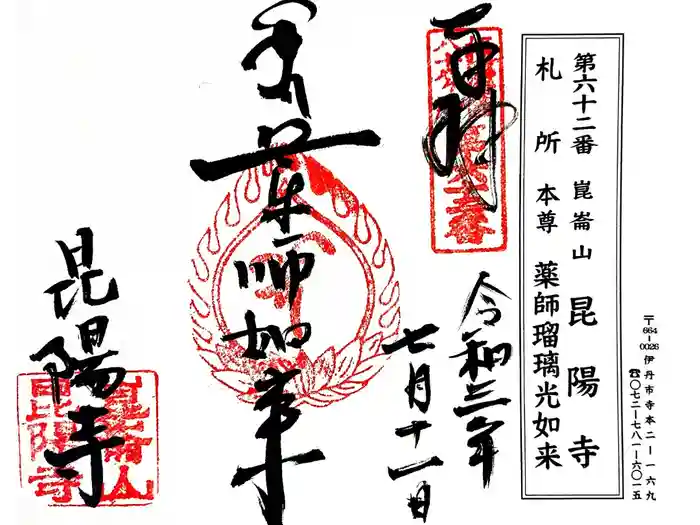 第六十二番 崑崙山 昆陽寺
札所 本尊 薬師瑠璃光如来
〒664-0026 伊丹市寺本二-一六九
☎〇七二-七八一-六〇一五
奉拝
令和三年
七月十一日
薬師如来
昆陽寺